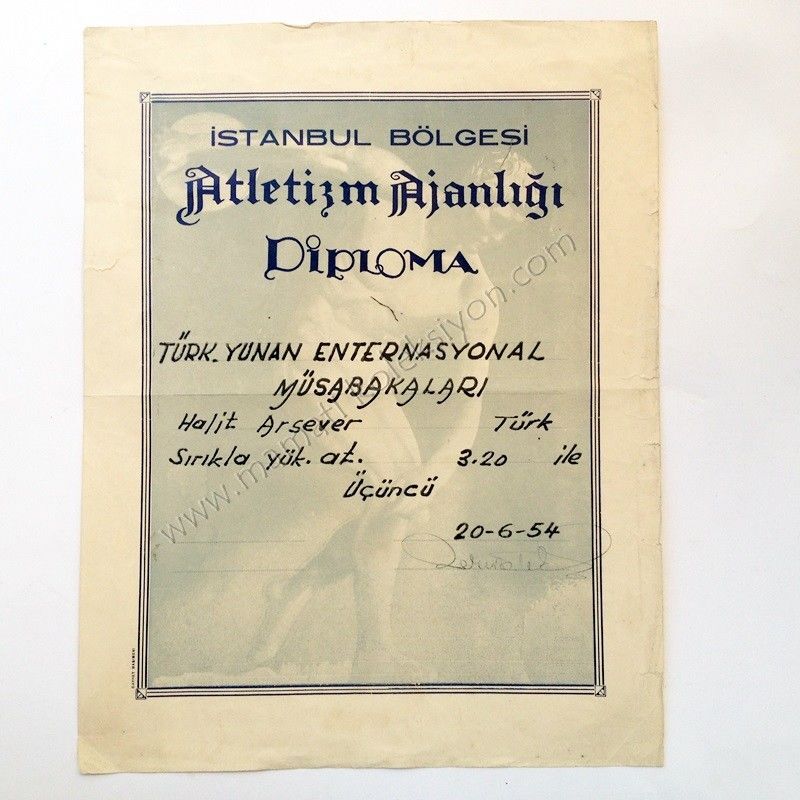 İSTANBUL BÖLGESİ
Atletizm Ajanlığı
DİPLOMA
TÜRK.YUNAN ENTERNASYONAL
MÜSABAKALARI
Halit Arsever Türk
Sırıkla yük. at. 3.20 ile
Üçüncü
20-6-54